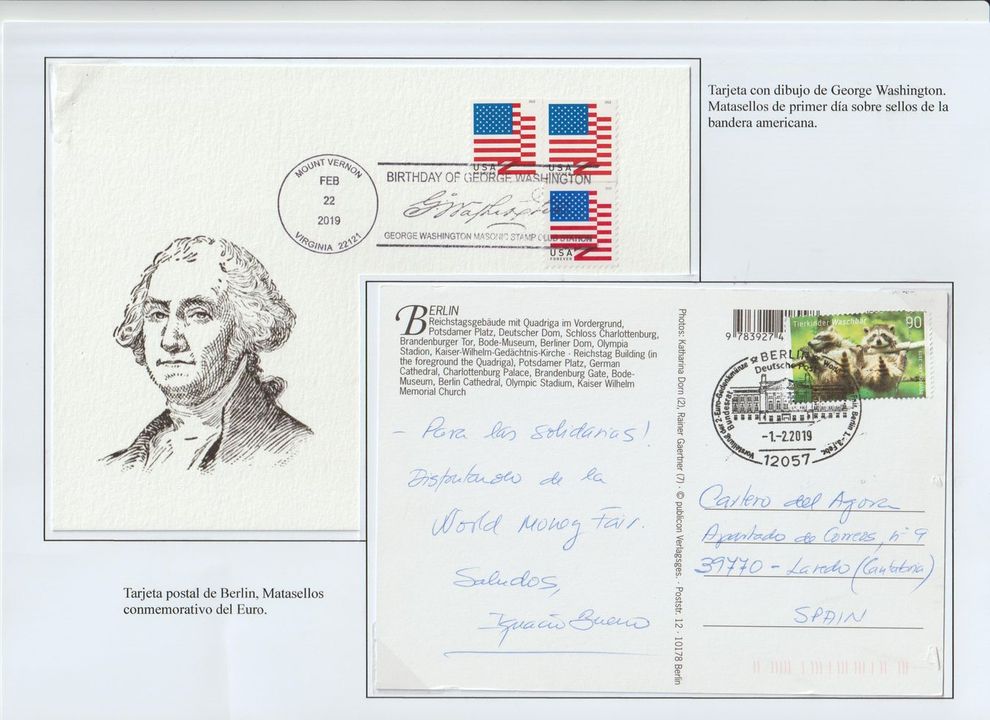 Tarjeta con dibujo de George Washington.
Matasellos de primer día sobre sellos de la
bandera americana.
USA
USA
USA
FOREVER
MOUNT VERNON
FEB
22
2019
VIRGINIA 22121
BIRTHDAY OF GEORGE WASHINGTON
G Washington
GEORGE WASHINGTON MASONIC STAMP CLUB STATION
BERLIN
Reichstagsgebäude mit Quadriga im Vordergrund,
Potsdamer Platz, Deutscher Dom, Schloss Charlottenburg,
Brandenburger Tor, Bode-Museum, Berliner Dom, Olympia
Stadion, Kaiser-Wilhelm-Gedächtnis-Kirche · Reichstag Building (in
the foreground the Quadriga), Potsdamer Platz, German
Cathedral, Charlottenburg Palace, Brandenburg Gate, Bode-
Museum, Berlin Cathedral, Olympic Stadium, Kaiser Wilhelm
Memorial Church
- Para las solidarias!
Disfrutando de la
World Money Fair.
Saludos,
Ignacio Bueno
Photos: Katharina Dorn (2), Rainer Gaertner (7) · © publicon Verlagsges. · Poststr. 12 · 10178 Berlin
9 783927 4
Tierkinder Waschbär
90
BERLIN
Deutsche Post
Vorstellung der 2-Euro-Gedenkmünze
Bundesrat
Berlin 1.-3. Febr.
-1.-2.2019
12057
Cartero del Agora
Apartado de Correos, nº 9
39770 - Laredo (Cantabria)
SPAIN
Tarjeta postal de Berlin, Matasellos
conmemorativo del Euro.